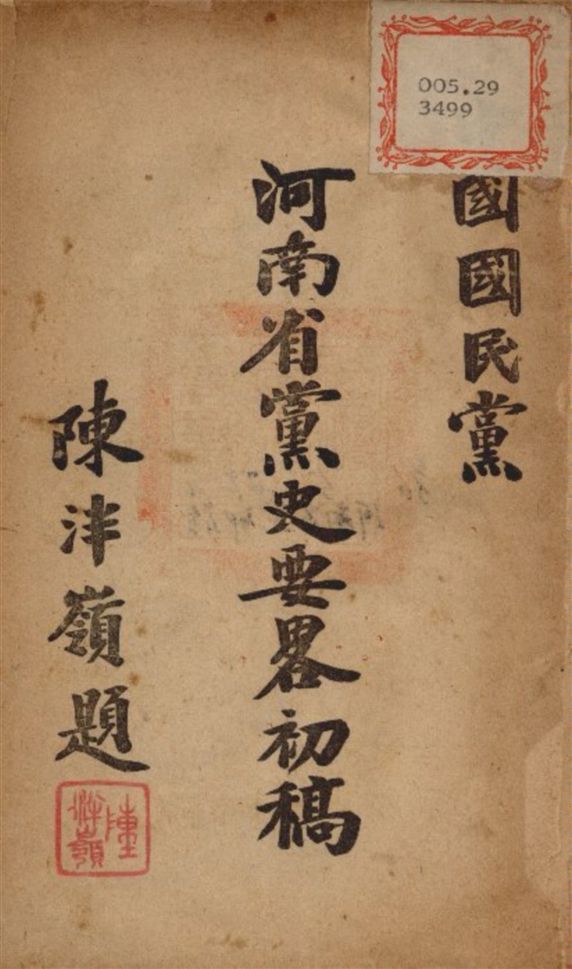 國國民黨
河南省黨史要畧初稿
陳泮嶺題
陳泮嶺
005.29
3499